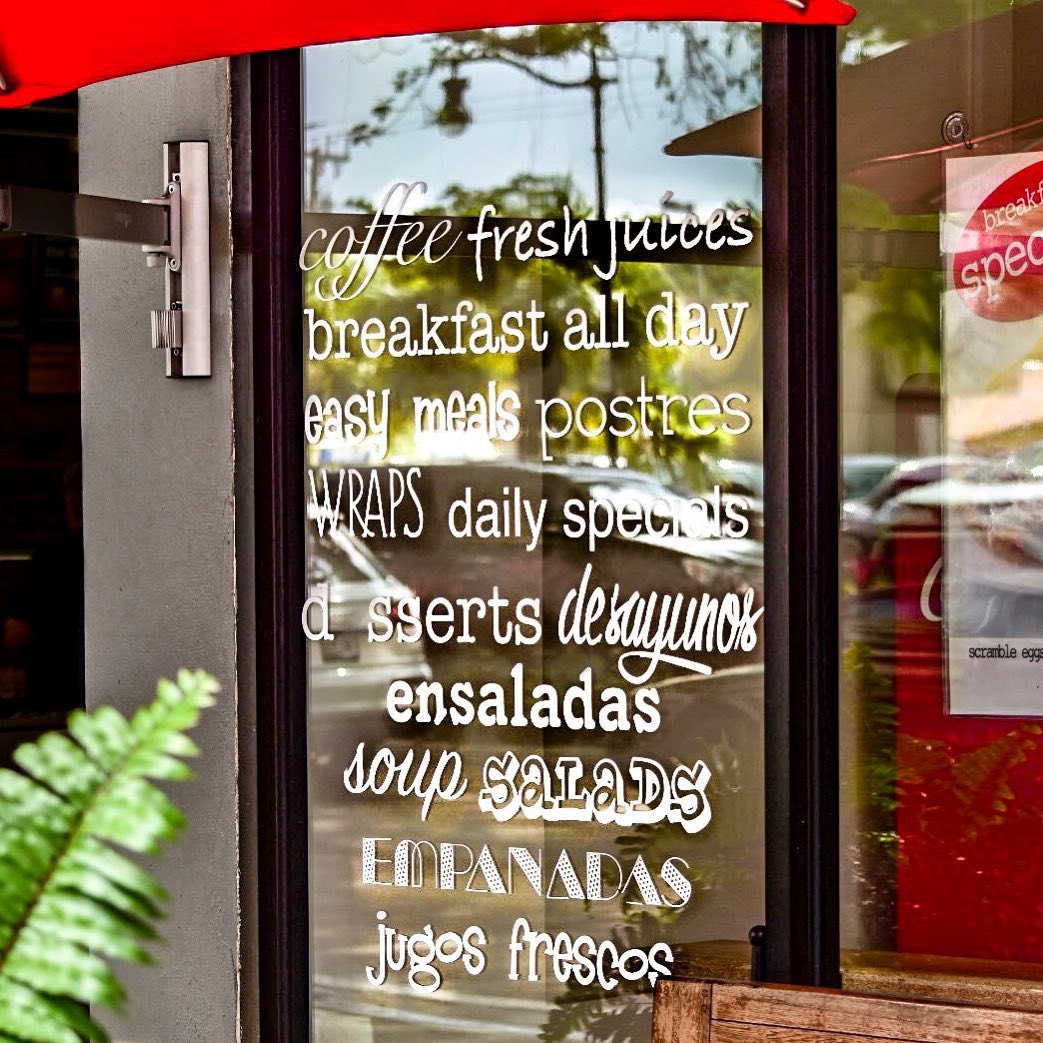 coffee fresh juices
breakfast all day
easy meals postres
WRAPS daily specials
d sserts desayunos
ensaladas
soup SALADS
EMPANADAS
jugos frescos
scramble eggs